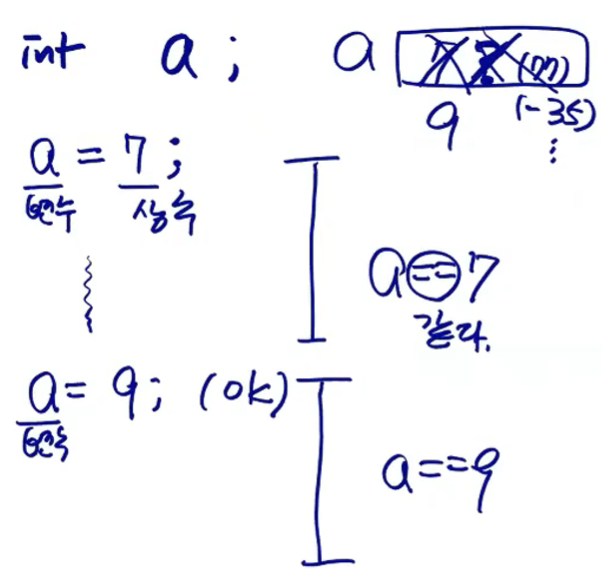 int a; a
9 (-35)
a = 7;
변수 상수
a == 7
같다.
a = 9; (ok)
변수
a == 9